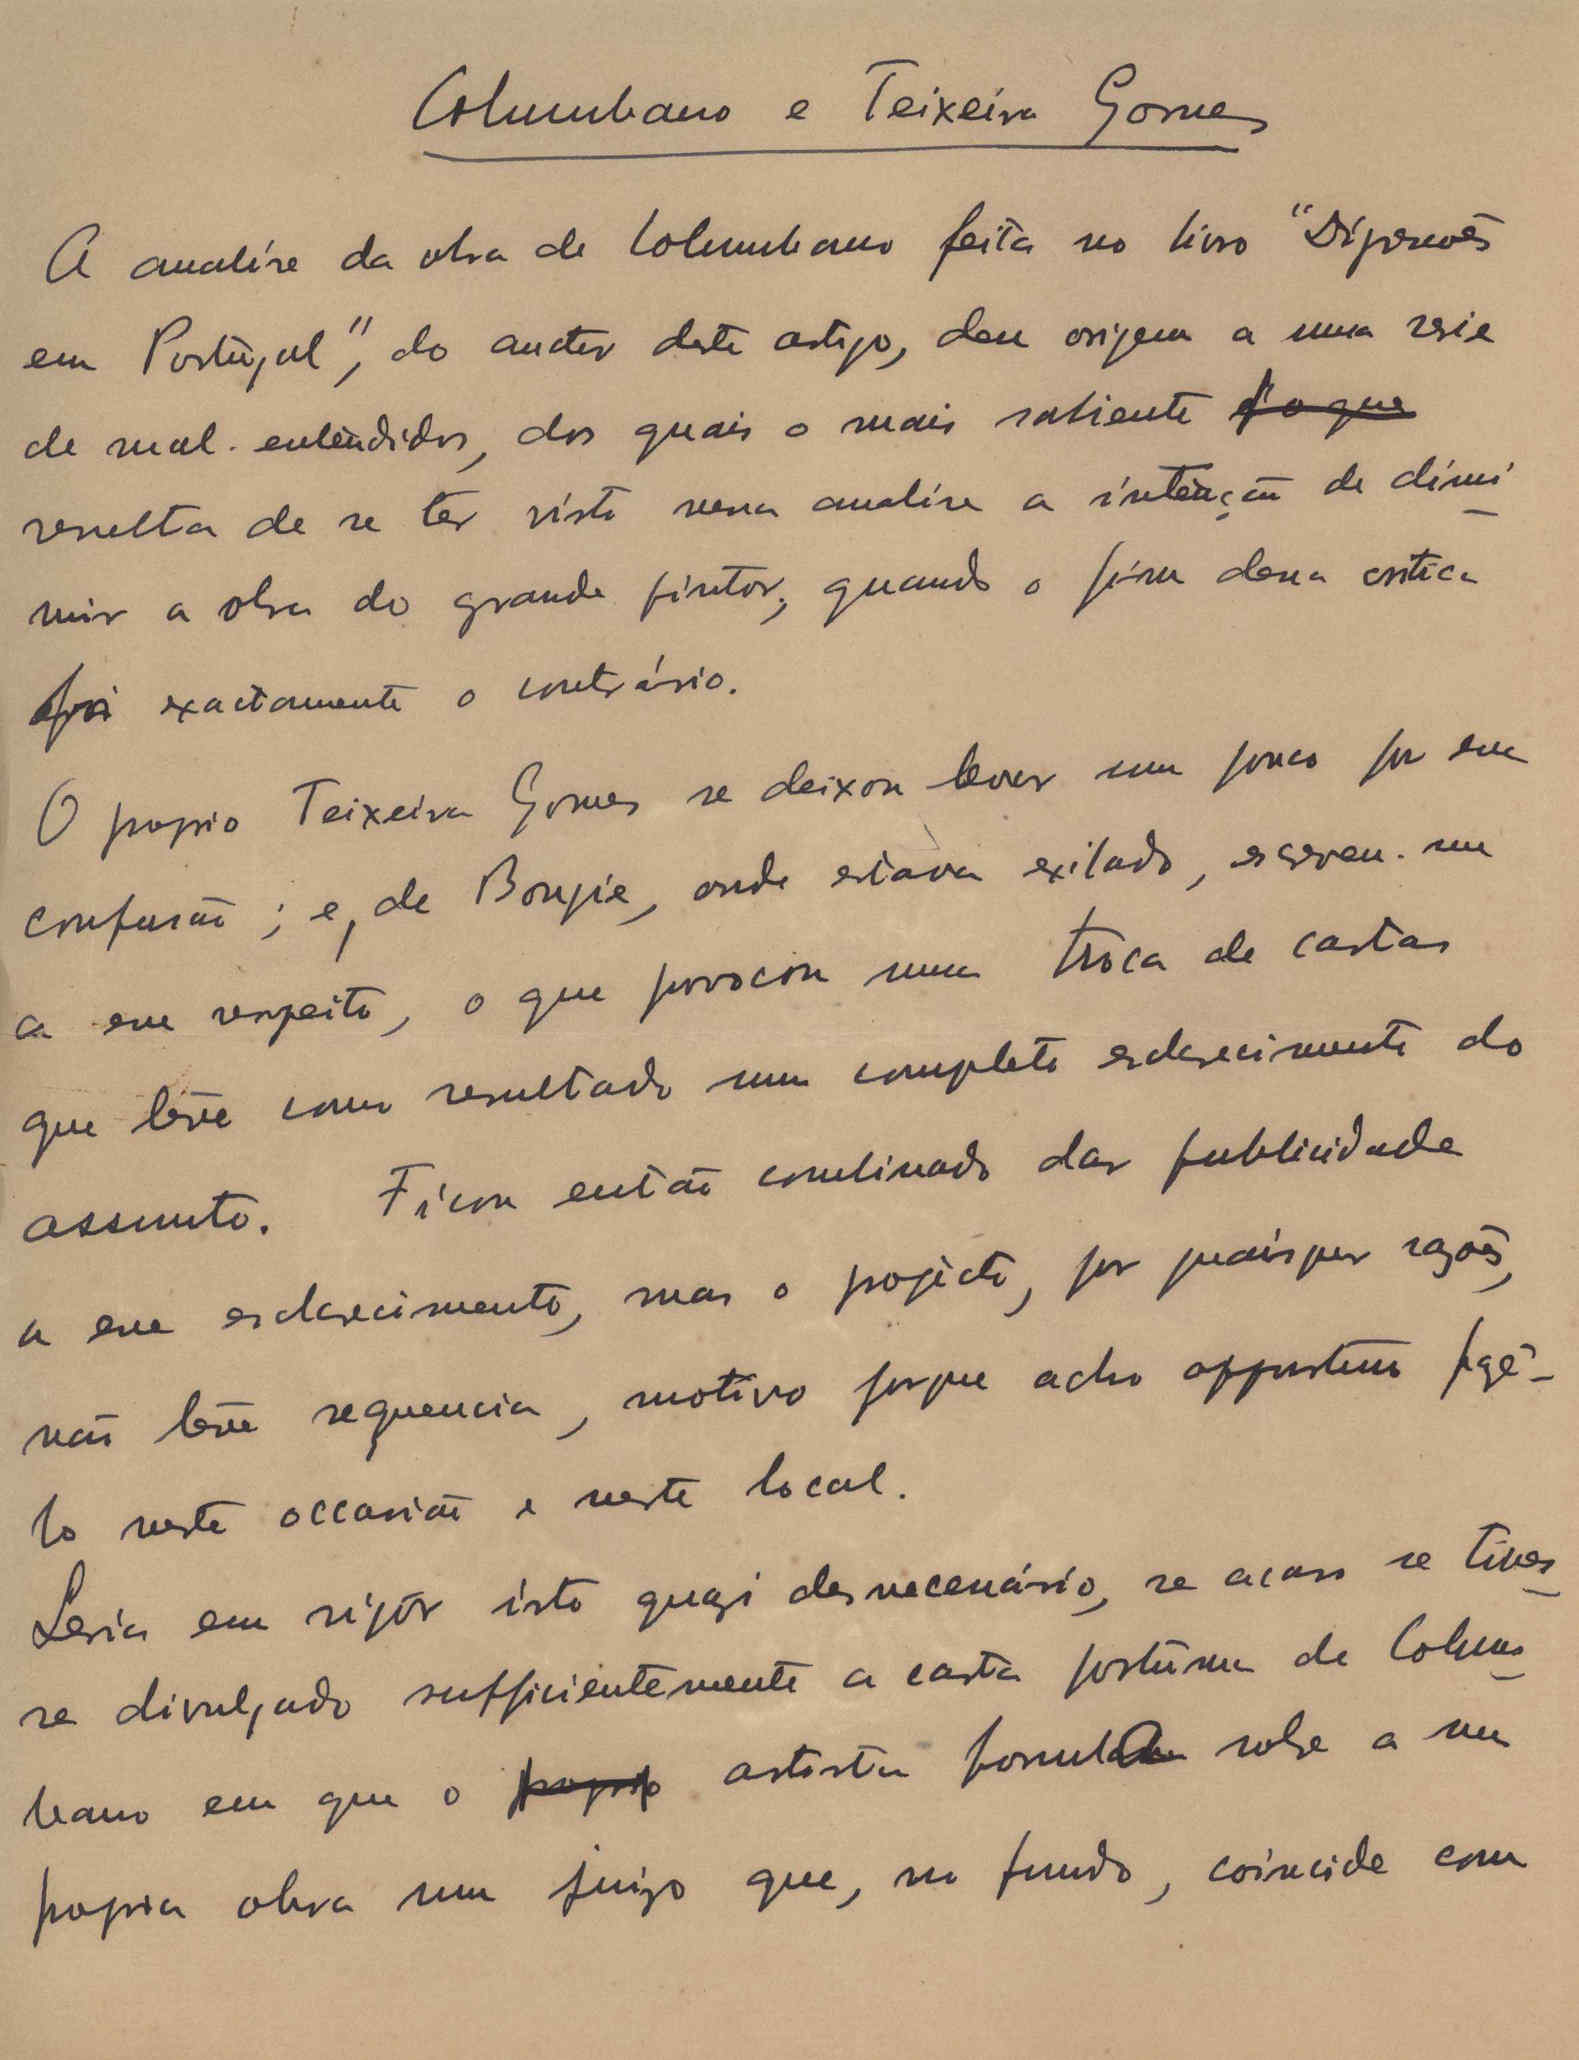 Columbano e Teixeira Gomes
A analise da obra de Columbano feita no livro "Digressões
em Portugal", do auctor deste artigo, deu origem a uma serie
de mal-entendidos, dos quais o mais saliente é o que
resulta de se ter visto nessa analise a intenção de dimi
nuir a obra do grande pintor, quando o fim dessa critica
foi exactamente o contrário.
O proprio Teixeira Gomes se deixou levar um pouco por essa
confusão; e, de Bougie, onde estava exilado, escreveu-me
a esse respeito, o que provocou uma troca de cartas
que teve como resultado um completo esclarecimento do
assunto. Ficou então combinado dar publicidade
a esse esclarecimento, mas o projecto, por quaisquer razões,
não teve sequencia, motivo porque acho opportuno fazê-
lo nesta occasião e neste local.
Seria em rigôr isto quazi desnecessário, se acaso se tives
se divulgado sufficientemente a carta postuma de Colum
bano em que o proprio artista formula sobre a sua
propria obra um juizo que, no fundo, coincide com